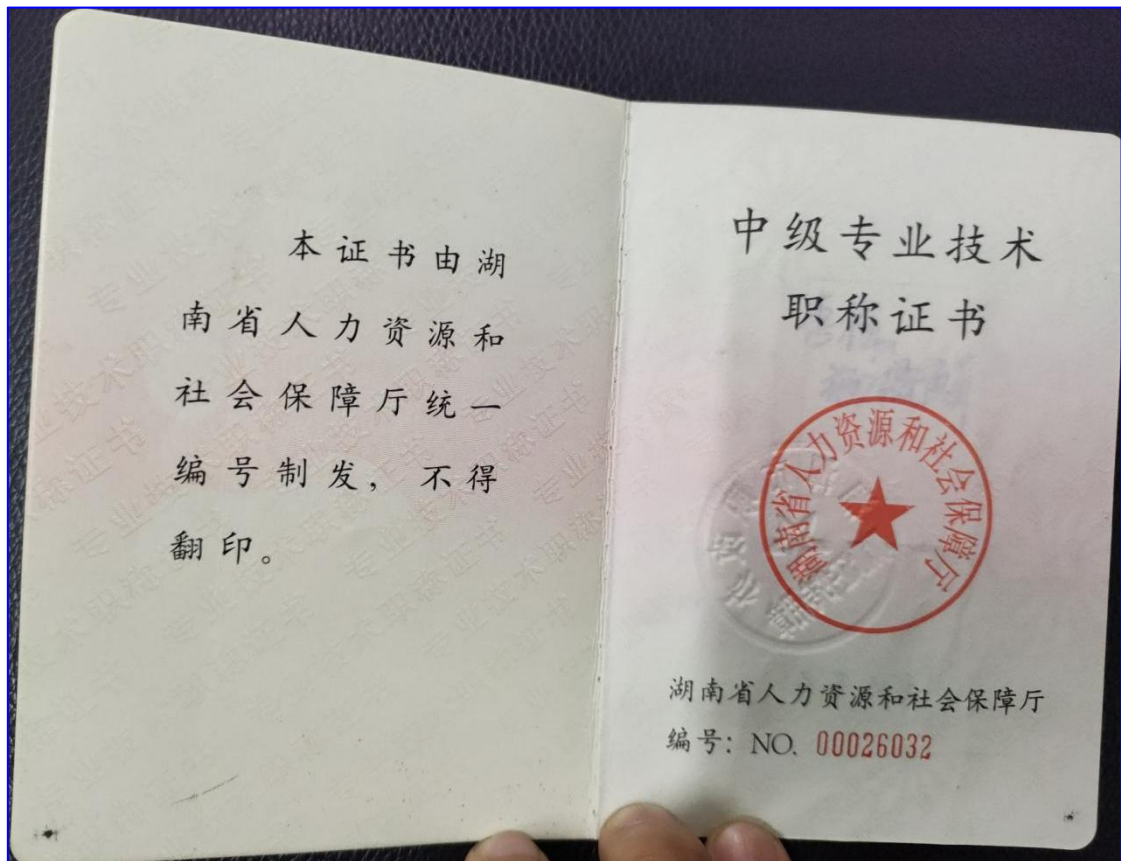 本证书由湖
南省人力资源和
社会保障厅统一
编号制发，不得
翻印。
中级专业技术
职称证书
湖南省人力资源和社会保障厅
湖南省人力资源和社会保障厅
编号：NO. 00026032